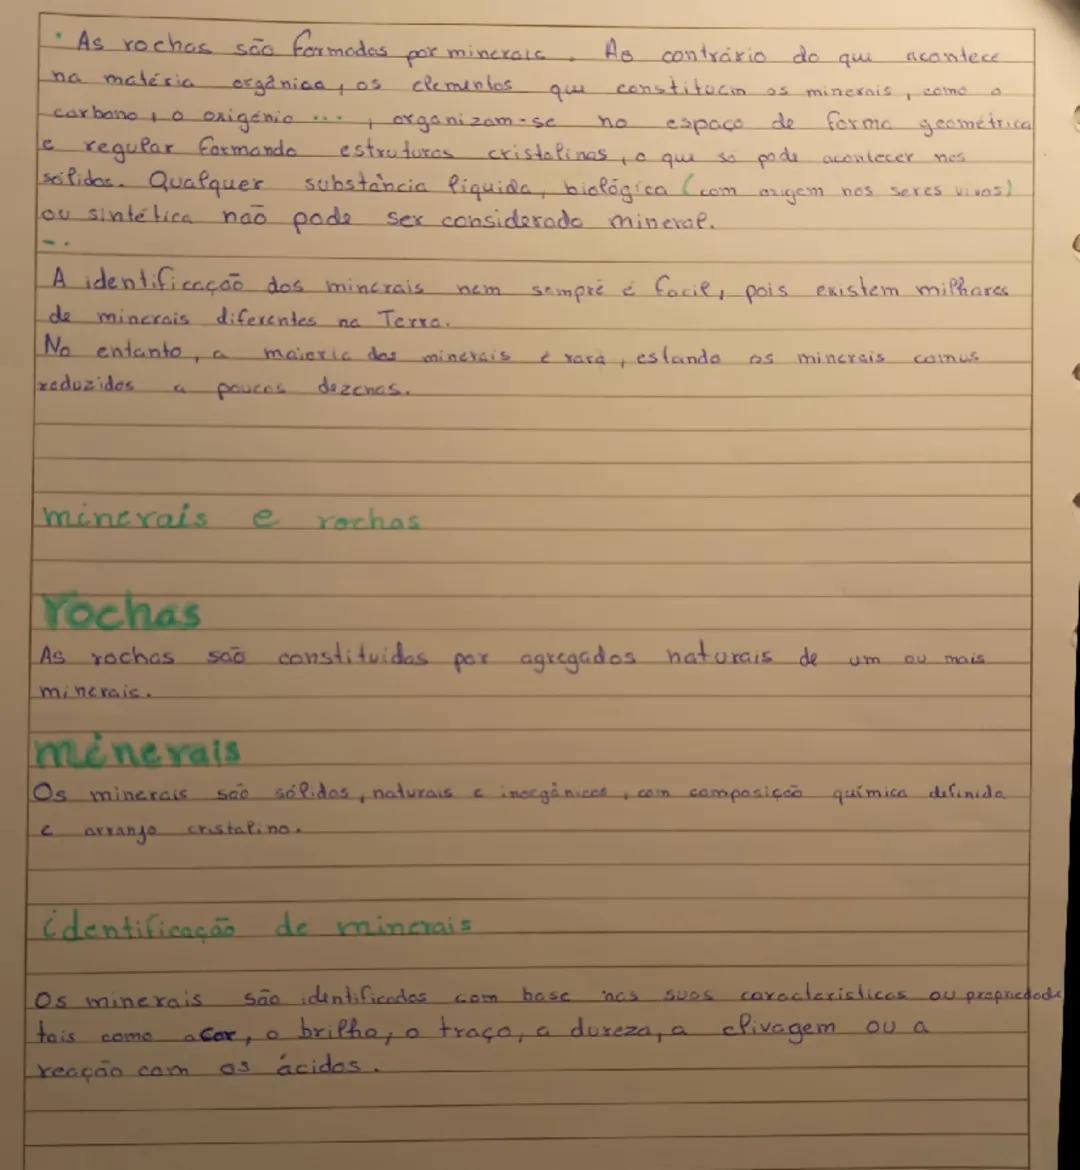 • As rochas são formadas por minerais. Ao contrário do que acontece
na matéria orgânica, os elementos que constituem os minerais, como o
carbono, o oxigénio ..., organizam-se no espaço de forma geométrica
e regular formando estruturas cristalinas, o que só pode acontecer nos
sólidos. Qualquer substância líquida, biológica (com origem nos seres vivos)
ou sintética não pode ser considerado mineral.
A identificação dos minerais nem sempre é facil, pois existem milhares
de minerais diferentes na Terra.
No entanto, a maioria dos minerais é rara, estando os minerais comus
reduzidos a poucas dezenas.
minerais e rochas
rochas
As rochas são constituidas por agregados naturais de um ou mais
minerais.
minerais
Os minerais são sólidos, naturais e inorgânicos, com composição química definida
e arranjo cristalino.
identificação de minerais
Os minerais são identificados com base nas suas caracteristicas ou propriedade
tais como a cor, o brilho, o traço, a dureza, a clivagem ou a
reação com os ácidos.